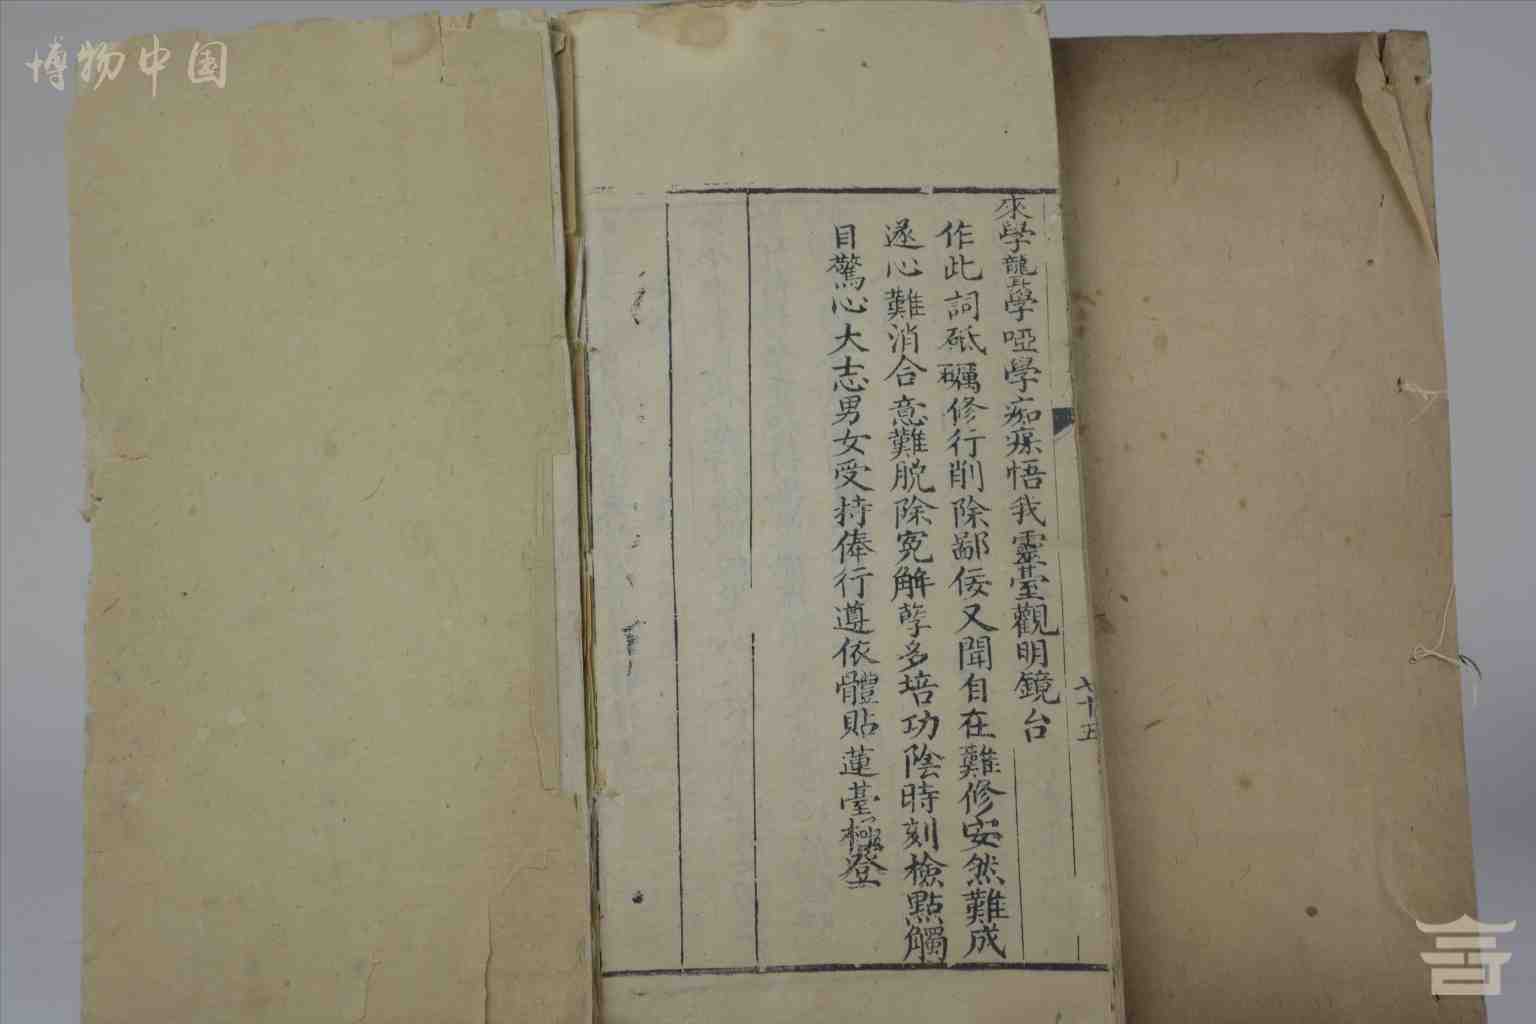 博物中国
七十五
來學聾學啞學痴㾿悟我靈臺觀明鏡台
作此詞砥礪修行削除鄙佞又聞自在難修安然難成
遂心難消合意難脫除冤解孽多培功陰時刻檢點觸
目驚心大志男女受持俸行遵依體貼蓮臺極登